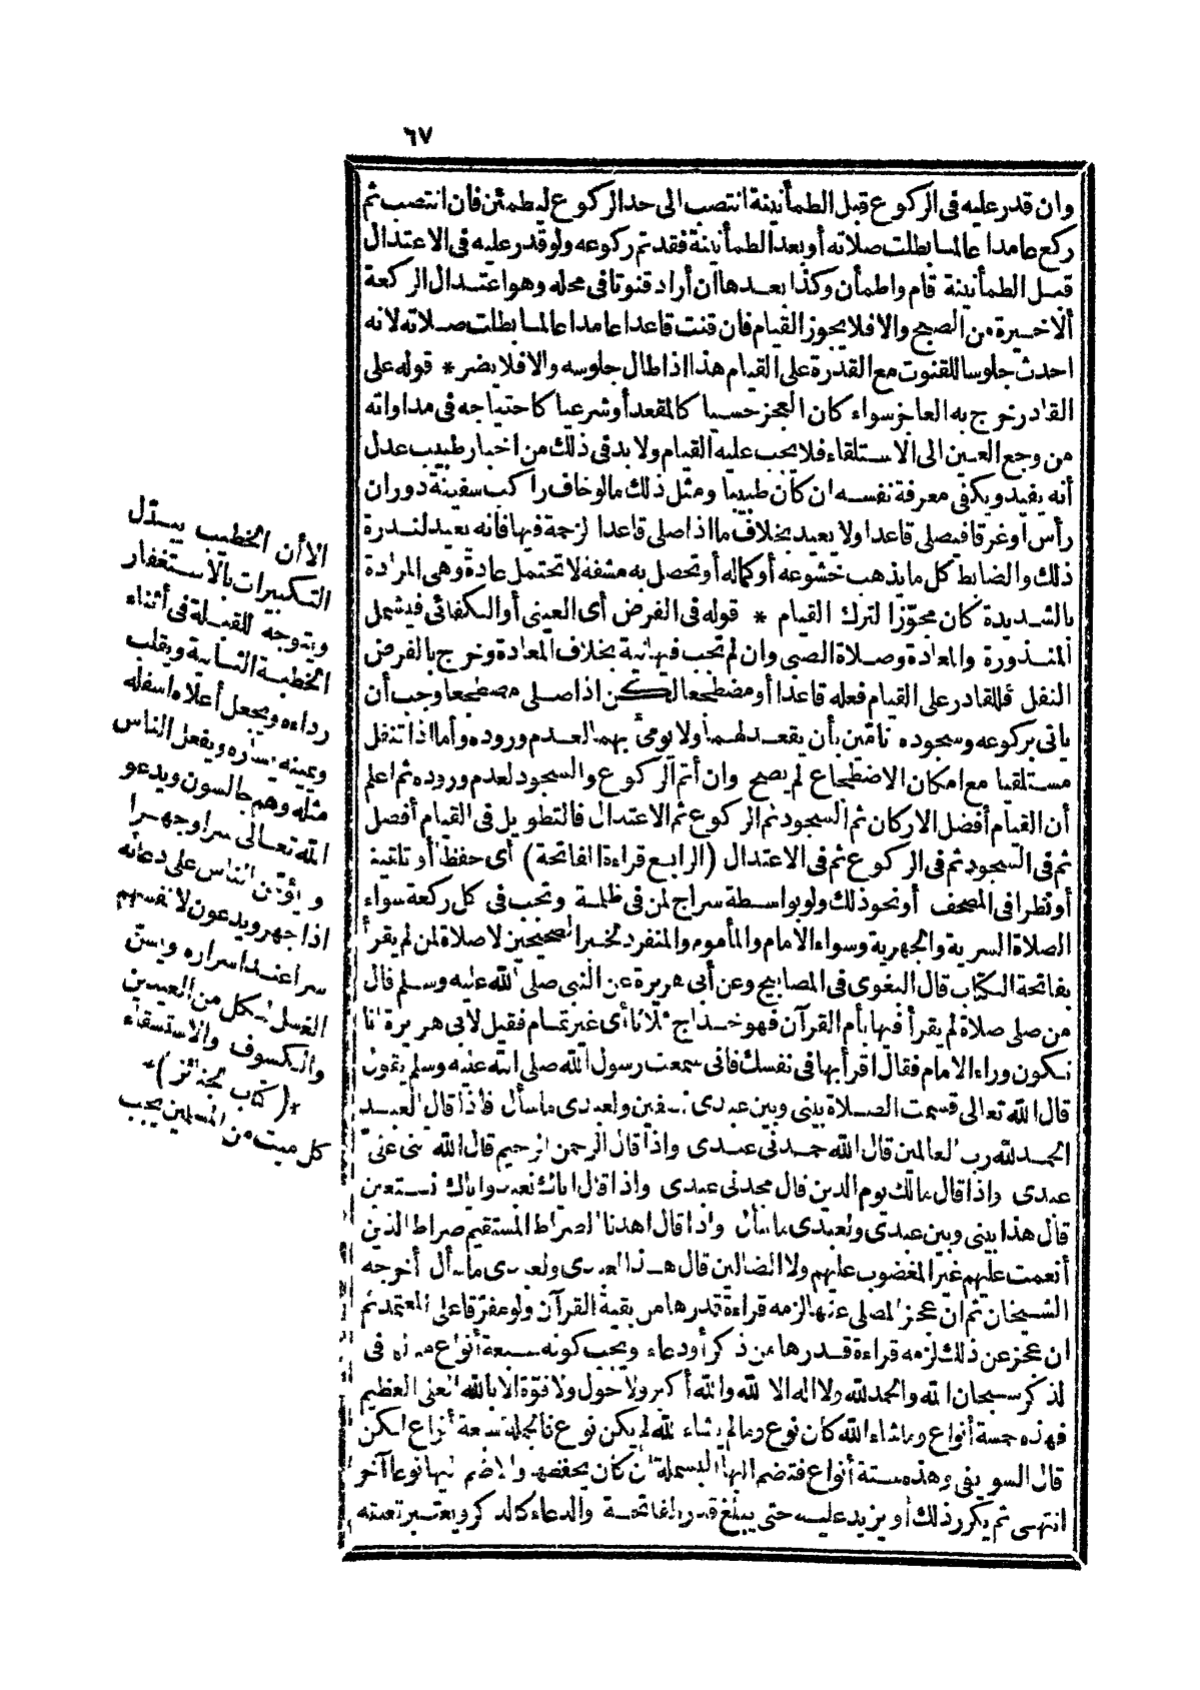 ٦٧
وان قدر عليه فى الركوع قبل الطمأنينة انتصب الى حد الركوع ليطمئن فان انتصب ثم
ركع عامدا عالما بطلت صلاته أو بعد الطمأنينة فقد تم ركوعه ولو قدر عليه فى الاعتدال
قبل الطمأنينة قام واطمأن وكذا بعدها ان أراد قنوتا فى محله وهو اعتدال الركعة
الاخيرة من الصبح والا فلا يجوز القيام فان قنت قاعدا عامدا عالما بطلت صلاته لانه
احدث جلوسا للقنوت مع القدرة على القيام هذا اذا طال جلوسه والا فلا يضر * قوله على
القادر خرج به العاجز سواء كان العجز حسيا كالمقعد أو شرعيا كاحتياجه فى مداواته
من وجع العين الى الاستلقاء فلا يجب عليه القيام ولا بد فى ذلك من اخبار طبيب عدل
أنه يفيد ويكفى معرفة نفسه ان كان طبيبا ومثل ذلك ما لو خاف راكب سفينة دوران
رأس أو غرقا فيصلى قاعدا ولا يعيد بخلاف ما اذا صلى قاعدا لزحمة فيها فانه يعيد لندرة
ذلك والضابط كل ما يذهب خشوعه أو كماله أو تحصل به مشقة لا تحتمل عادة وهى المرادة
بالشديدة كان مجوّزا لترك القيام * قوله فى الفرض أى العينى أو الكفائى فيشمل
المنذورة والمعادة وصلاة الصبى وان لم تجب فيها نية بخلاف المعادة وخرج بالفرض
النفل فللقادر على القيام فعله قاعدا أو مضطجعا لكن اذا صلى مضطجعا وجب أن
يأتى بركوعه وسجوده تامّين بأن يقعد لهما ولا يومئ بهما لعدم وروده وأما اذا تنفل
مستلقيا مع امكان الاضطجاع لم يصح وان أتم الركوع والسجود لعدم وروده ثم اعلم
أن القيام أفضل الاركان ثم السجود ثم الركوع ثم الاعتدال فالتطويل فى القيام أفضل
ثم فى السجود ثم فى الركوع ثم فى الاعتدال (الرابع قراءة الفاتحة) أى حفظا أو تلقينا
أو نظرا فى المصحف أو نحو ذلك ولو بواسطة سراج لمن فى ظلمة وتجب فى كل ركعة سواء
الصلاة السرية والجهرية وسواء الامام والمأموم والمنفرد لخبر الصحيحين لا صلاة لمن لم يقرأ
بفاتحة الكتاب قال البغوى فى المصابيح وعن أبى هريرة عن النبى صلى الله عليه وسلم قال
من صلى صلاة لم يقرأ فيها بأم القرآن فهو خداج ثلاثا أى غير تمام فقيل لابى هريرة انا
نكون وراء الامام فقال اقرأ بها فى نفسك فانى سمعت رسول الله صلى الله عليه وسلم يقول
قال الله تعالى قسمت الصلاة بينى وبين عبدى نصفين ولعبدى ما سأل فاذا قال العبد
الحمد لله رب العالمين قال الله حمدنى عبدى واذا قال الرحمن الرحيم قال الله أثنى علىّ
عبدى واذا قال مالك يوم الدين قال مجدنى عبدى واذا قال اياك نعبد واياك نستعين
قال هذا بينى وبين عبدى ولعبدى ما سأل واذا قال اهدنا الصراط المستقيم صراط الذين
أنعمت عليهم غير المغضوب عليهم ولا الضالين قال هذا لعبدى ولعبدى ما سأل أخرجه
الشيخان ثم ان عجز المصلى عنها لزمه قراءة قدرها من بقية القرآن ولو مفرّقا على المعتمد ثم
ان عجز عن ذلك لزمه قراءة قدرها من ذكر أو دعاء ويجب كونه سبعة أنواع فى
الذكر سبحان الله والحمد لله ولا اله الا الله والله أكبر ولا حول ولا قوة الا بالله العلى العظيم
فهذه خمسة أنواع وما شاء الله كان نوع وما لم يشاء الله لم يكن نوع فالجملة سبعة أنواع لكن
قال السويفى وهذه ستة أنواع فتضم اليها البسملة ان كان يحفظها والا ضم اليها نوعا آخر
انتهى ثم يكرر ذلك أو يزيد عليه حتى يبلغ قدر الفاتحة والدعاء كالذكر ويعتبر تعينه
الا أن الخطيب يبدّل
التكبيرات بالاستغفار
ويتوجه للقبلة فى أثناء
الخطبة الثانية ويقلب
رداءه ويجعل أعلاه اسفله
ويمينه يساره ويفعل الناس
مثله وهم جالسون ويدعو
الله تعالى سرا وجهرا
ويؤمّن الناس على دعائه
اذا جهر ويدعون لانفسهم
سرا عند اسراره ويسن
الغسل لكل من العيدين
والكسوف والاستسقاء
*(كتاب الجنائز)*
كل ميت من المسلمين يجب